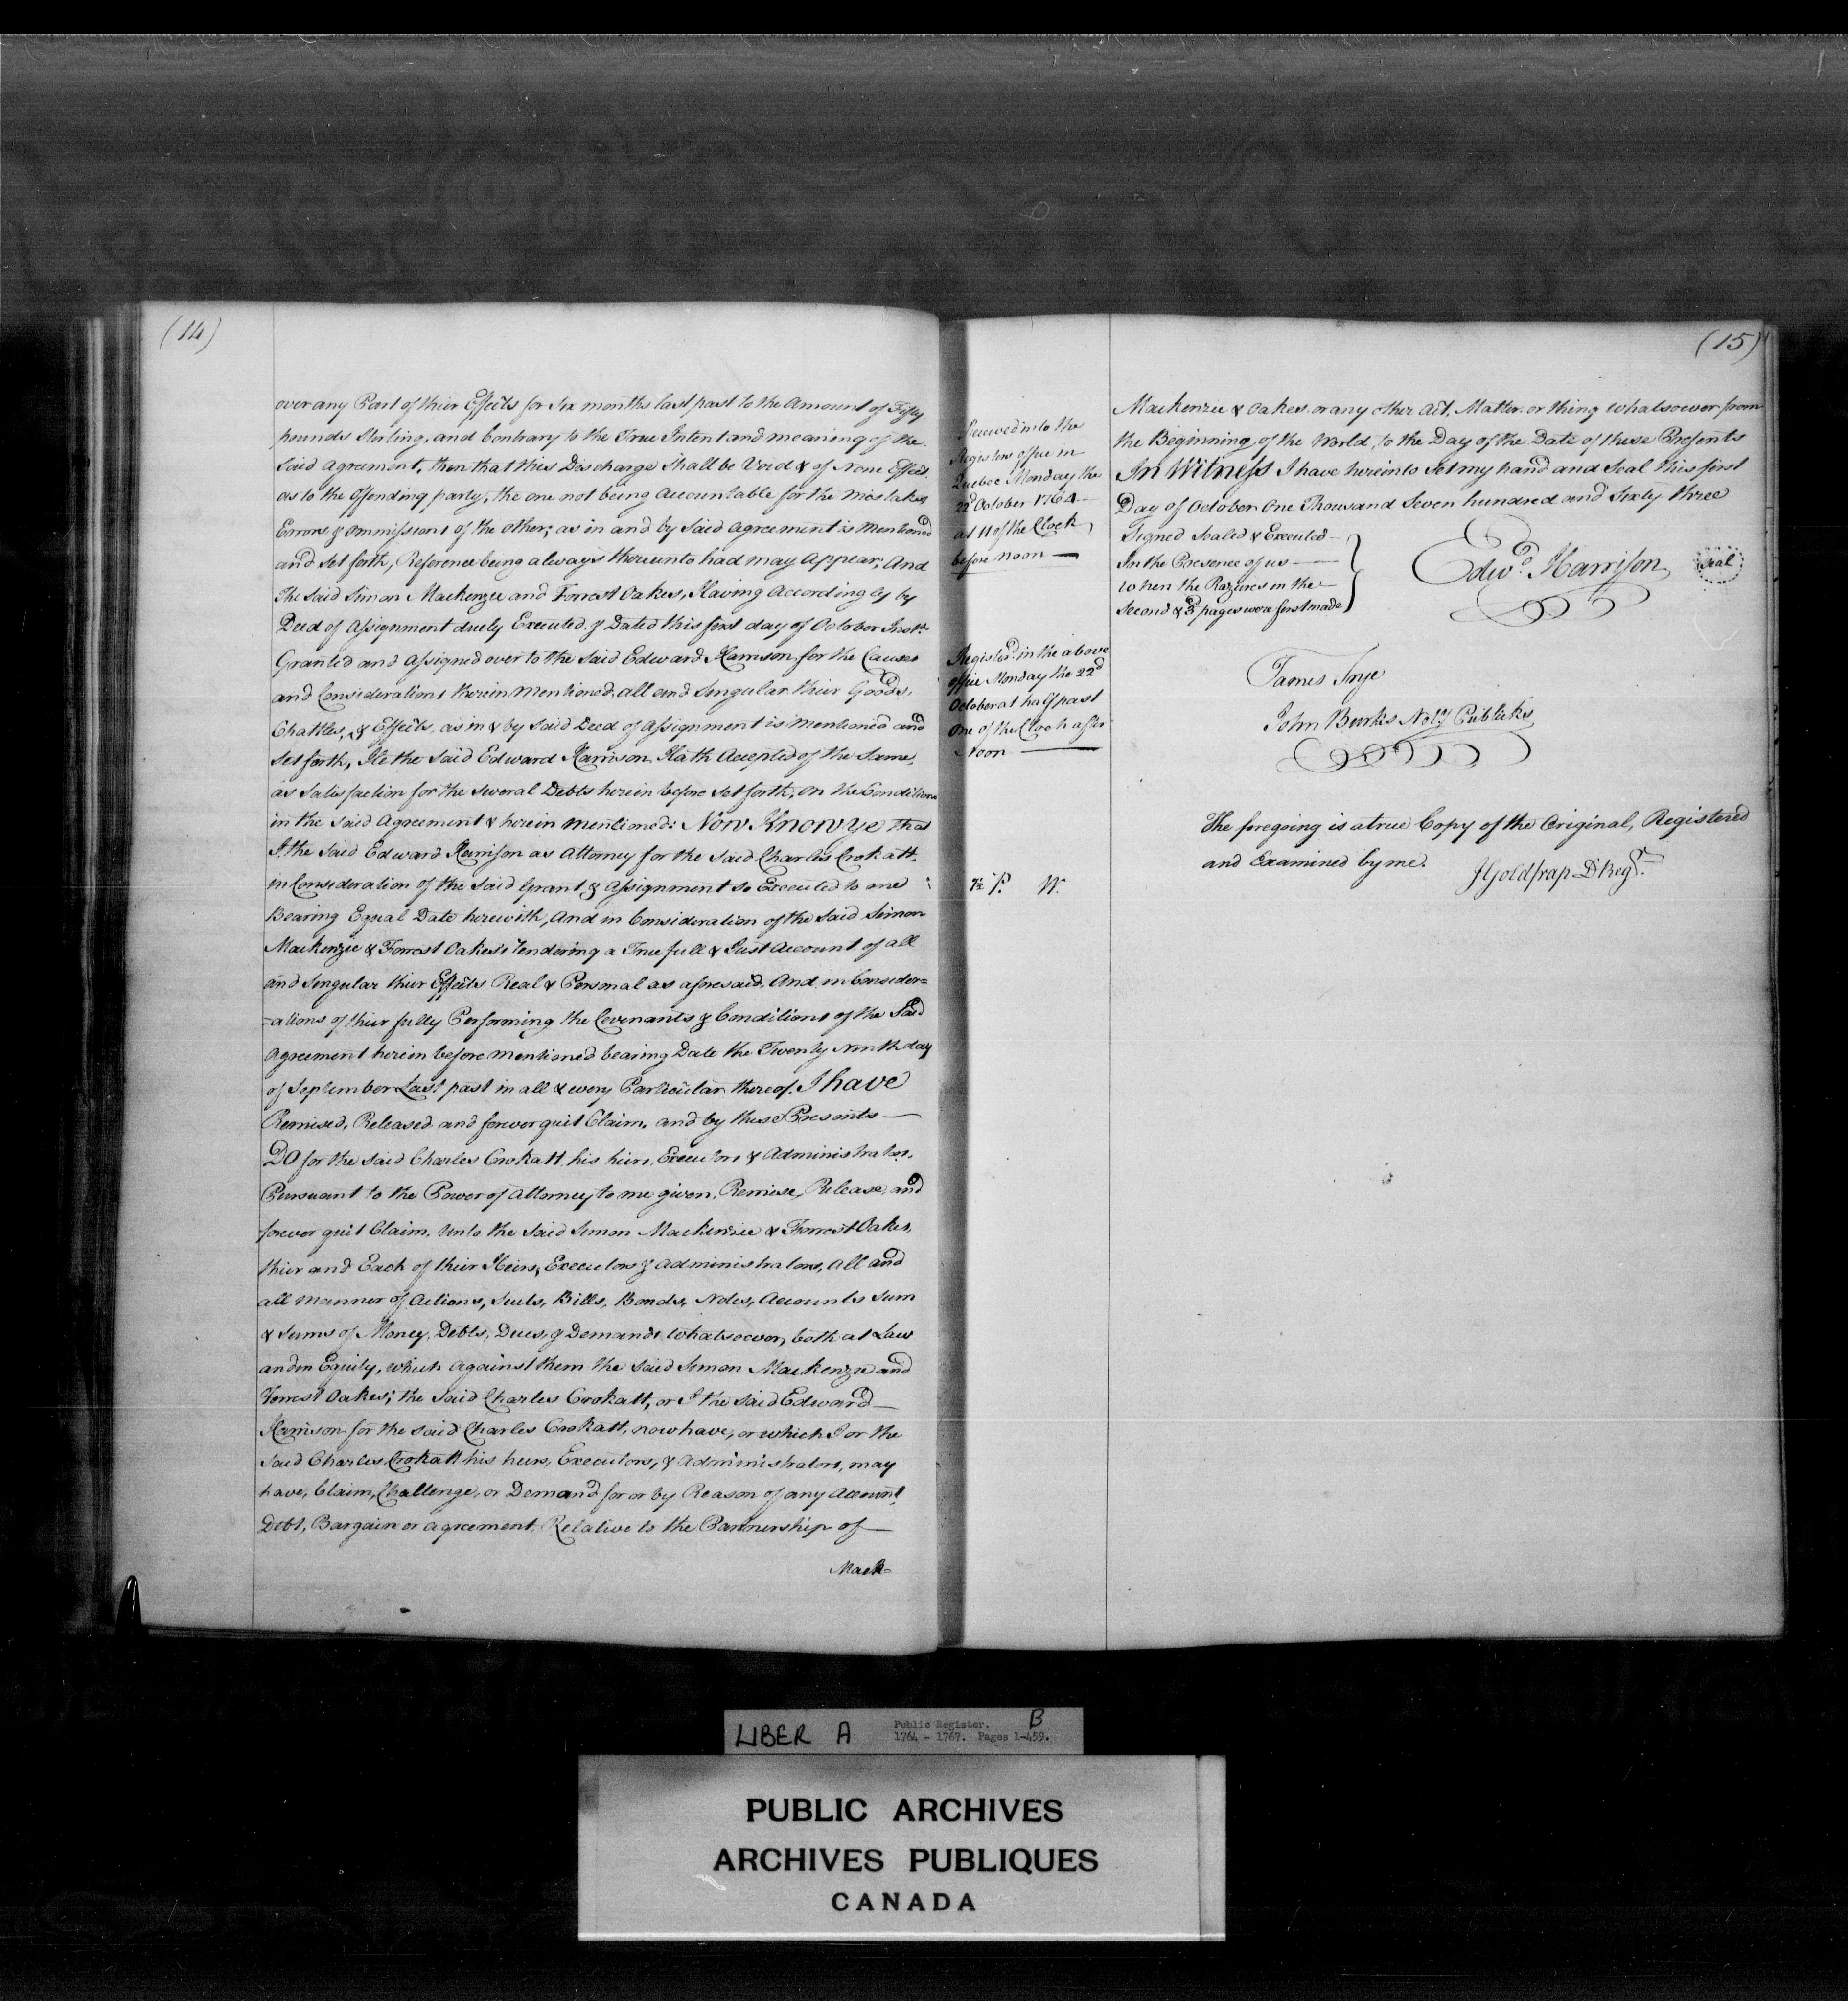 (14)
over any Part of thier Effects for Six months last past to the Amount of Fifty
pounds Sterling, and Contrary to the True Intent and meaning of the
Said Agreement, then that this Discharge Shall be Void & of None Effect
as to the Offending party, the one not being Accountable for the Mistakes,
Errors & Ommissions of the Other; as in and by Said Agreement is Mentioned
and Set forth, Reference being always thereunto had may Appear; And
The Said Simon Mackenzie and Forrest Oakes, Having Accordingly by
Deed of Assignment duely Executed & Dated this first day of October Inst.t
Granted and Assigned over to the Said Edward Harrison for the Causes
and Considerations therein Mentioned, all and Singular thier Goods,
Chattles, & Effects, as in & by Said Deed of Assignment is Mentioned and
Set forth, He the Said Edward Harrison Hath Accepted of the Same,
as Satisfaction for the Several Debts herein before Set forth, On the Conditions
in the Said Agreement & herein Mentioned: Now Know ye That
I, the Said Edward Harrison as Attorney for the Said Charles Crokatt,
in Consideration of the Said Grant & Assignment So Executed to me
Bearing Equal Date herewith, And in Consideration of the Said Simon
Mackenzie & Forrest Oakes's tendering a True full & Just Account of all
and Singular thier Effects Real & Personal as aforesaid, And in Consider=
=ations of thier fully Performing the Covenants & Conditions of the Said
Agreement herein before Mentioned bearing Date the Twenty Ninth day
of September Last past in all & every Particular thereof. I have
Remised, Released and forever quit Claim, and by these Presents
DO for the Said Charles Crokatt, his heirs, Executors & Administrators,
Pursuant to the Power of Attorney to me given, Remise, Release, and
forever quit Claim, Unto the Said Simon Mackenzie & Forrest Oakes,
thier and Each of thier Heirs, Executors & Administrators, All and
all Manner of Actions, Suits, Bills, Bonds, Notes, Accounts Sum
& Sums of Money, Debts, Dues, & Demands whatsoever, both at Law
and in Equity, which against them the Said Simon Mackenzie and
Forrest Oakes; the Said Charles Crokatt, or I the Said Edward
Harrison for the Said Charles Crokatt, now have, or which I or the
Said Charles Crokatt his heirs, Executors, & Administrators, may
have, Claim, Challenge, or Demand for or by Reason of any Account,
Debt, Bargain or agreement, Relative to the Partnership of
Mack=
(15)
Received into the
Registers Office in
Quebec Monday the
22d October 1764
at 11 of the Clock
before Noon
Registerd in the above
office Monday the 22d
October at half past
One of the Clock after
Noon
P. W.
Mackenzie & Oakes, or any other Act, Matter, or thing whatsoever from
the Beginning of the World, to the Day of the Date of these Presents
In Witness I have hereinto Set my hand and Seal this first
Day of October One Thousand Seven hundred and Sixty three
Signed Sealed & Executed
In the Presence of us
When the Razures in the
Second & 3d pages were first made
Edwd. Harrison
Seal
James
John Burke Noty Publick
The foregoing is a true Copy of the Original, Registered
and Examined by me.
J Goldfrap D Regr.
LIBER A B
Public Register.
1764 - 1767. Pages 1-459.
PUBLIC ARCHIVES
ARCHIVES PUBLIQUES
CANADA